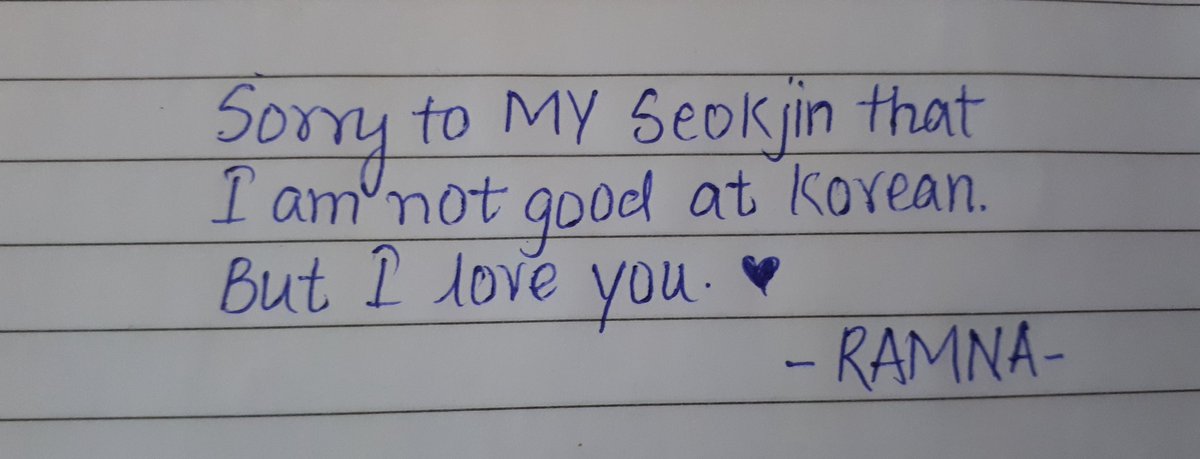 Sorry to MY Seokjin that
I am not good at Korean.
But I love you. ♥
- RAMNA-